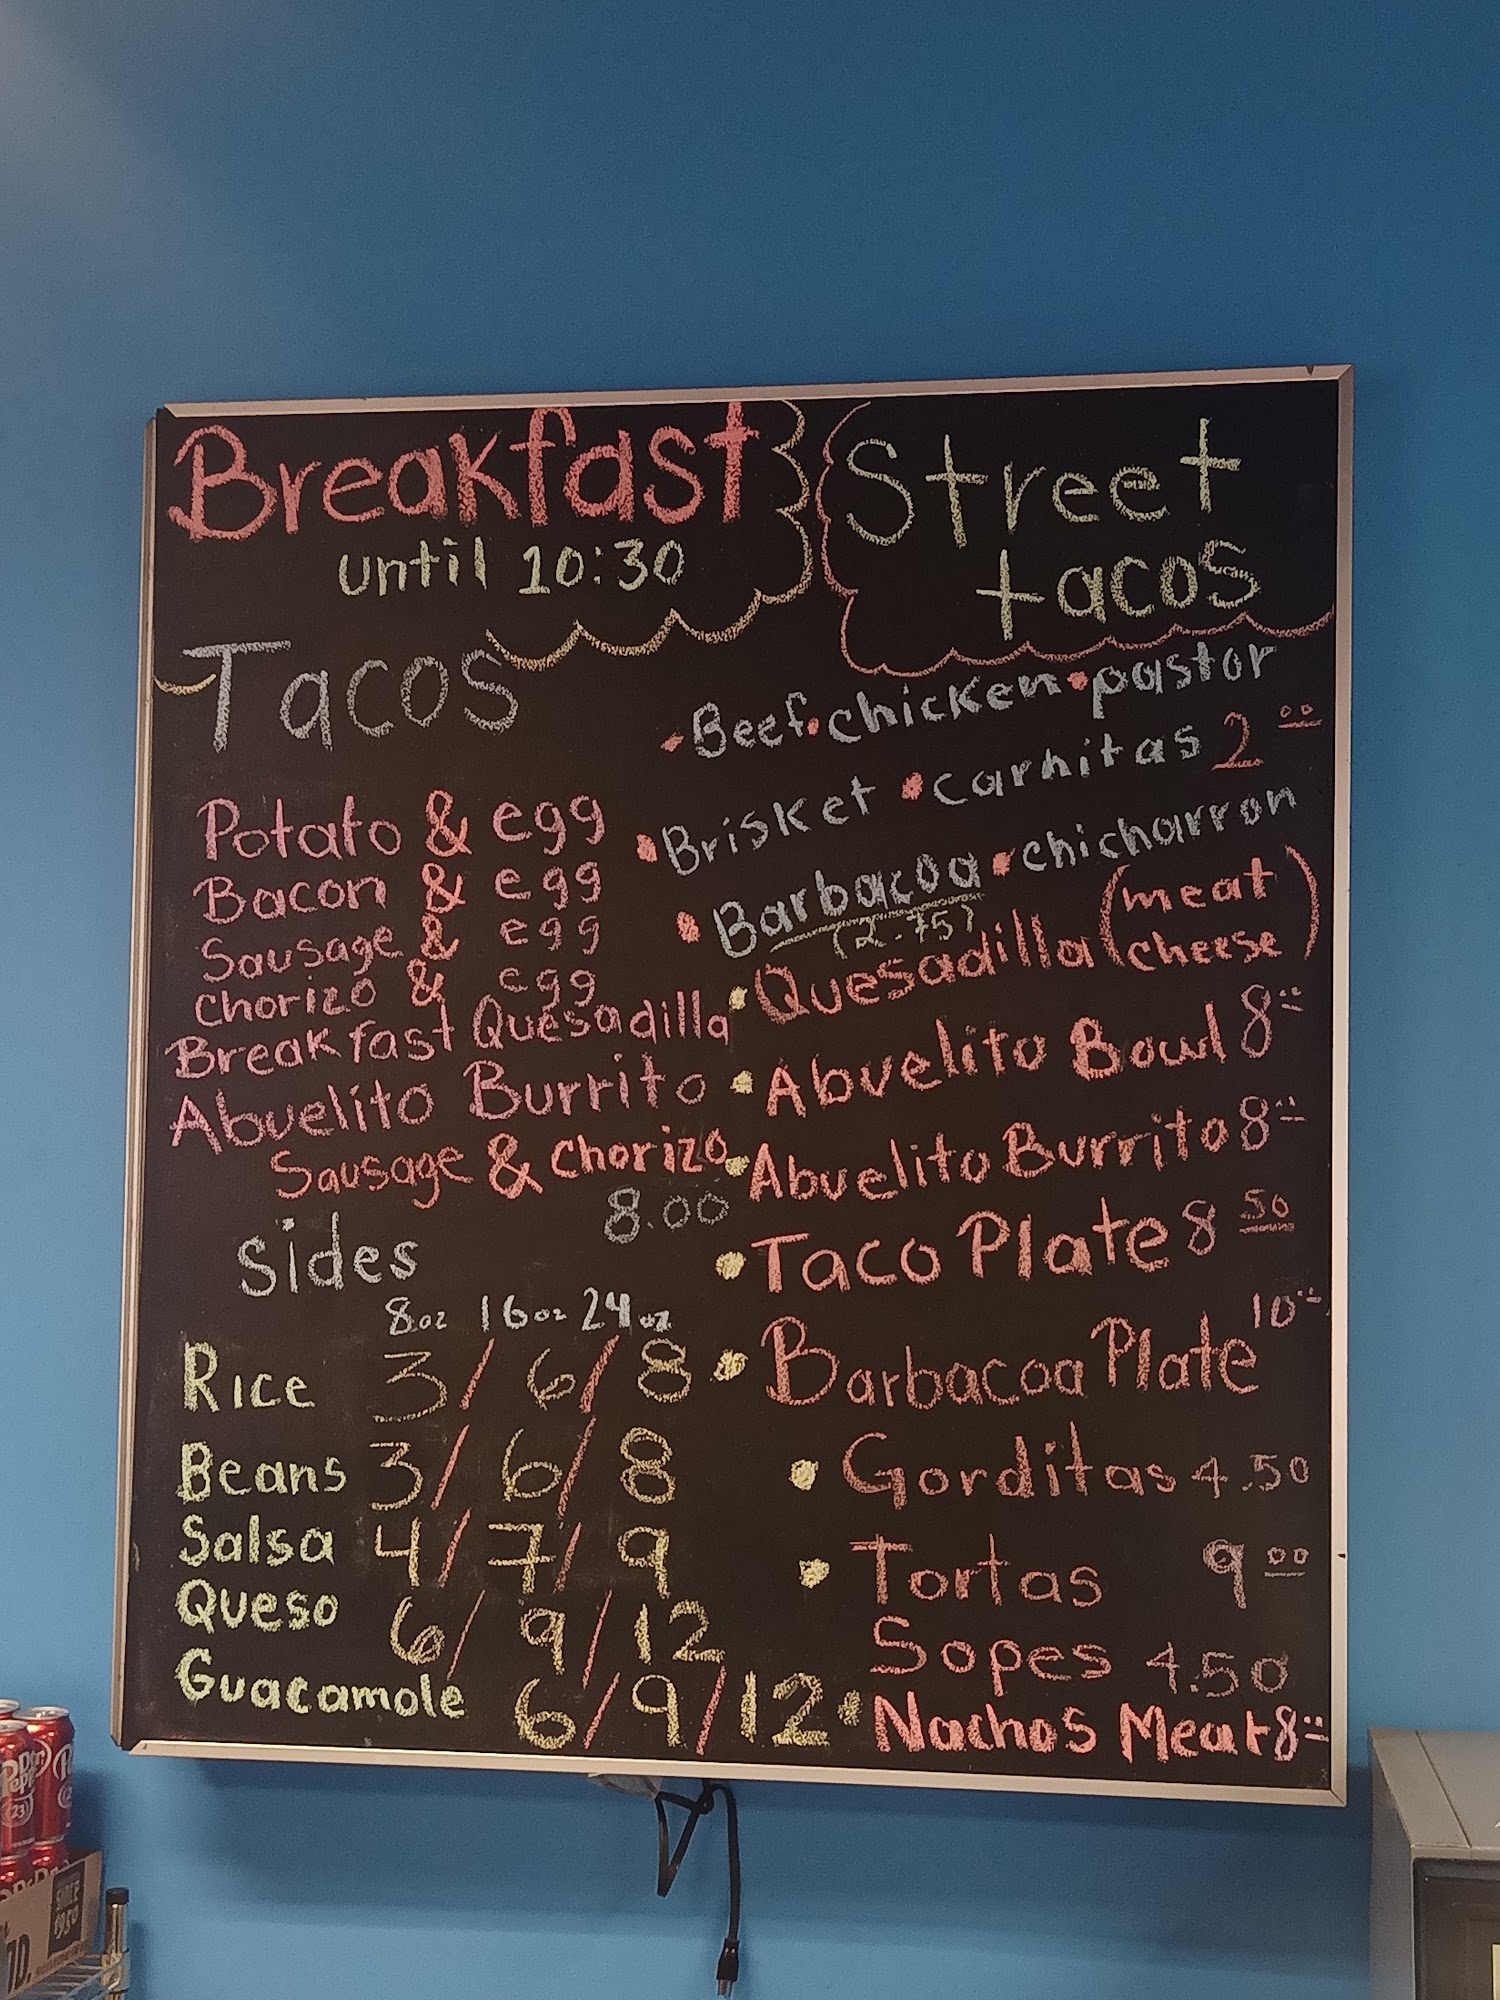 Breakfast
until 10:30
Tacos
Potato & egg
Bacon & egg
Sausage & egg
Chorizo & egg
Breakfast Quesadilla
Abuelito Burrito
Sausage & Chorizo
8.00
Sides
8oz 16oz 24oz
Rice 3/6/8
Beans 3/6/8
Salsa 4/7/9
Queso 6/9/12
Guacamole 6/9/12
Street
tacos
• Beef • chicken • pastor
• Brisket • carnitas 2.00
• Barbacoa • chicharron
(2.75)
• Quesadilla (meat
cheese)
• Abuelito Bowl 8
• Abuelito Burrito 8
• Taco Plate 8 50
• Barbacoa Plate 10
• Gorditas 4.50
• Tortas 9 00
Sopes 4.50
• Nachos Meat 8
Dr Pepper
23
SINCE
1950